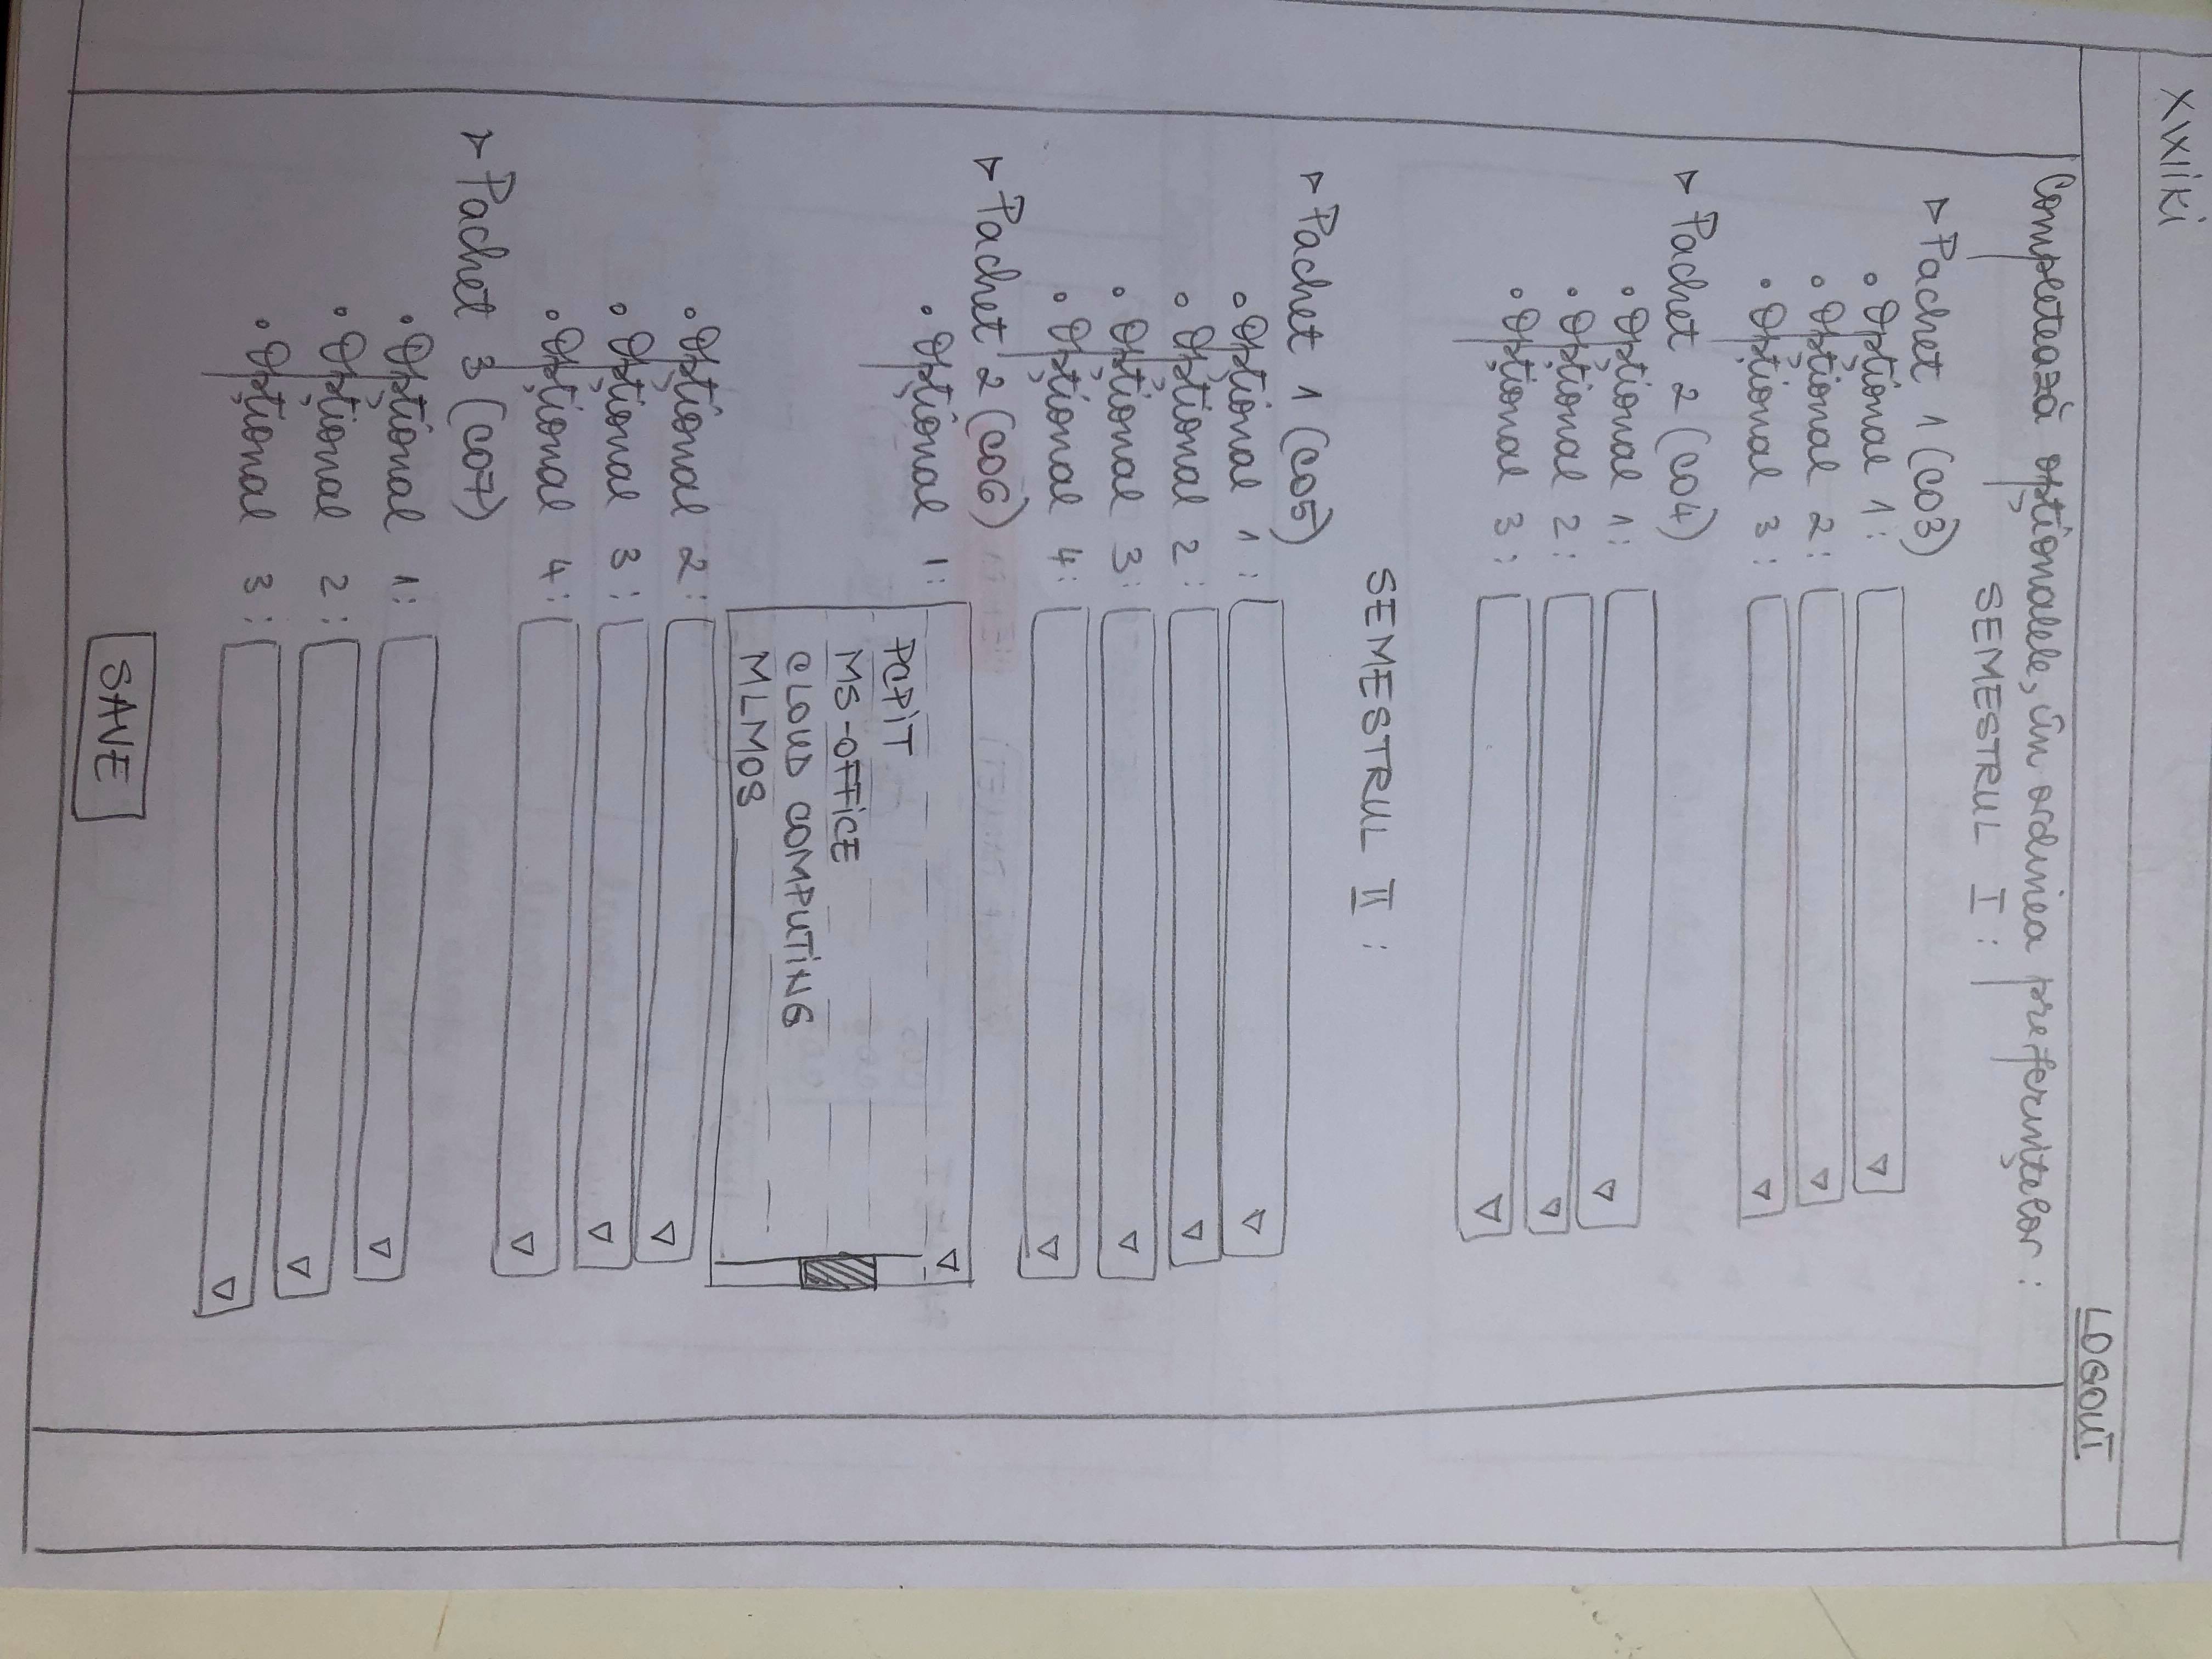 XWiki
LOGOUT
Completează opționalele, în ordinea preferințelor:
SEMESTRUL I:
Pachet 1 (CO3)
• Opțional 1:
• Opțional 2:
• Opțional 3:
Pachet 2 (CO4)
• Opțional 1:
• Opțional 2:
• Opțional 3:
SEMESTRUL II:
Pachet 1 (CO5)
• Opțional 1:
• Opțional 2:
• Opțional 3:
• Opțional 4:
Pachet 2 (CO6)
• Opțional 1:
PCPIT
MS-OFFICE
CLOUD COMPUTING
MLMOS
• Opțional 2:
• Opțional 3:
• Opțional 4:
Pachet 3 (CO7)
• Opțional 1:
• Opțional 2:
• Opțional 3:
SAVE